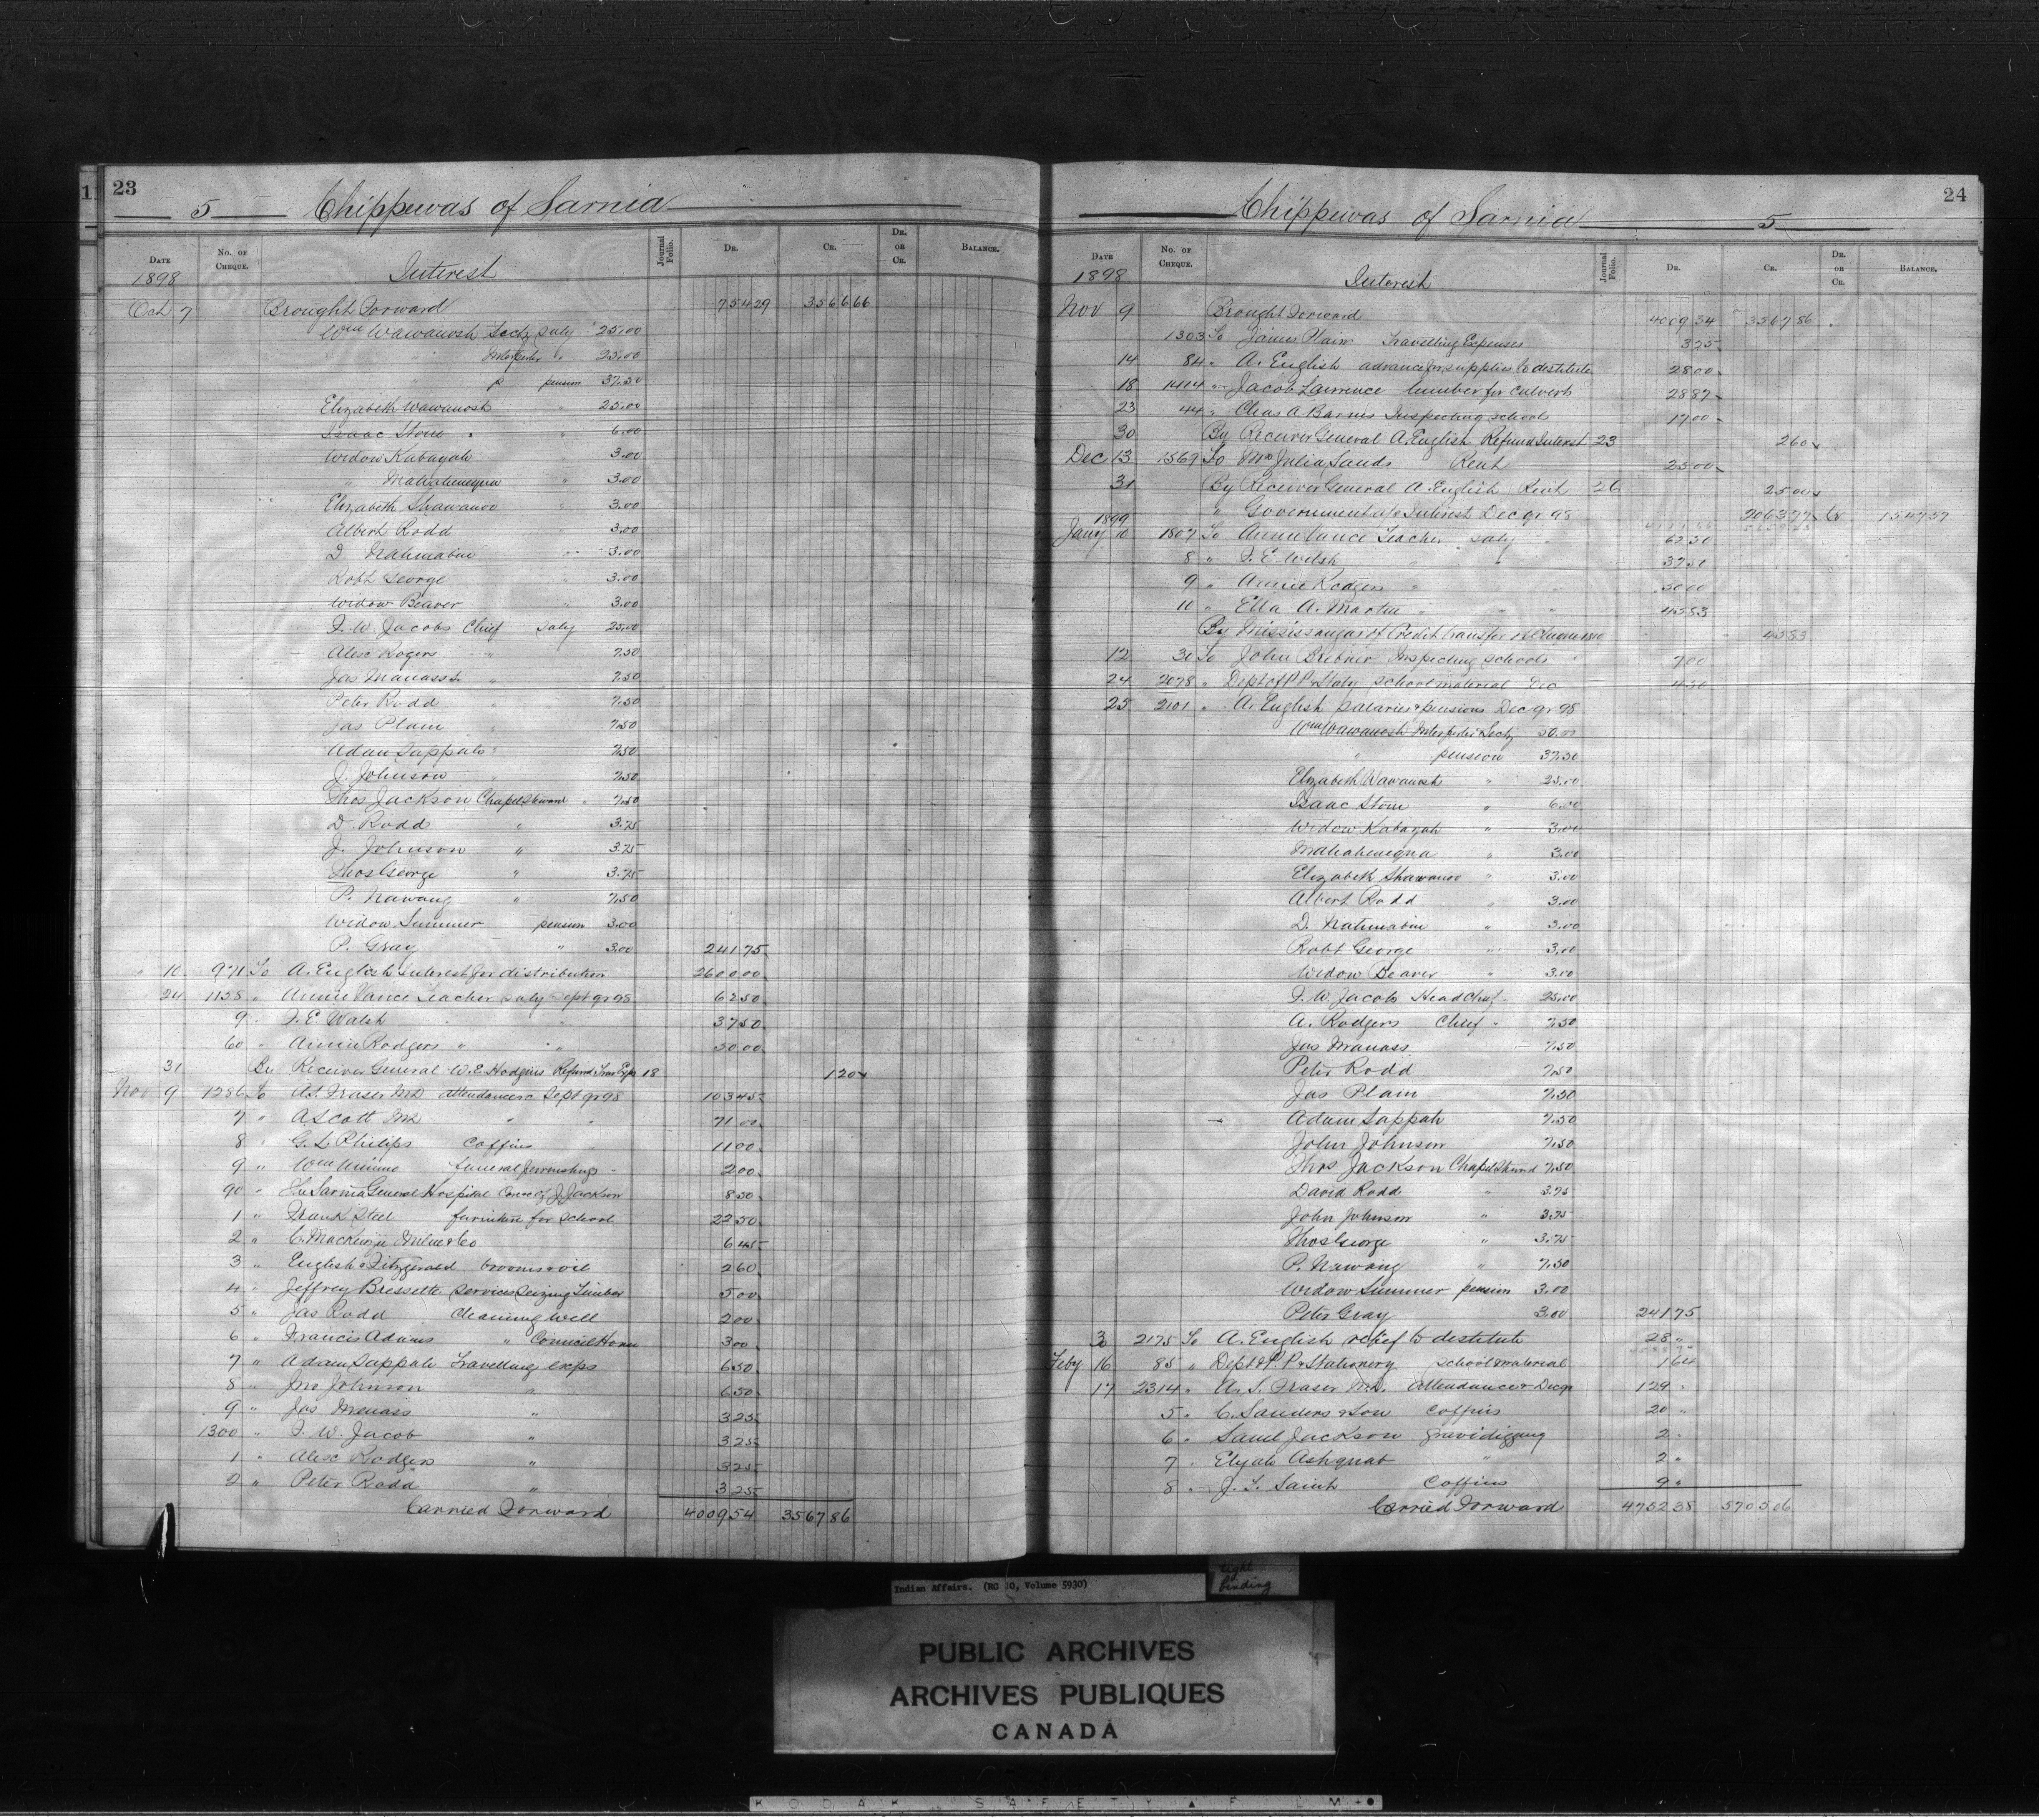 23
5 Chippewas of Sarnia
DATE No. OF CHEQUE. Journal Folio. DR. CR. DR. OR CR. BALANCE.
1898 Interest
Oct 7 Brought Forward 754 29 3566 66
Wm Wawanosh Secty Saly 25.00
" Interpreter " 25.00
" " pension 37.50
Elizabeth Wawanosh " 25.00
Isaac Stone " 6.00
Widow Kabayah " 3.00
" Mahahenequa " 3.00
Elizabeth Shawanoo " 3.00
Albert Rodd " 3.00
D. Nahmabin " 3.00
Robt George " 3.00
Widow Beaver " 3.00
F. W. Jacobs Chief Saly 25.00
Alex Rogers " 7.50
Jas Manass " 7.50
Peter Rodd " 7.50
Jas Plain " 7.50
Adam Sappah " 7.50
J. Johnson " 7.50
Thos Jackson Chapel Steward " 7.50
D. Rodd " 3.75
J. Johnson " 3.75
Thos George " 3.75
P. Nawang " 7.50
Widow Summer pension 3.00
P. Gray " 3.00 241 75
" 10 971 To A. English Interest for distribution 2600 00
" 24 1158 " Annie Vance Teacher Saly Sept qr 98 62 50
9 " J. E. Walsh " " 37 50
60 " Annie Rodgers " " 50 00
31 By Receiver General W. E. Hodgins Refund Trav Exps 18 1 20
Nov 9 1286 To A. S. Fraser MD attendance Sept qr 98 103 45
7 " A Scott MD " " 71 00
8 " G. L. Philips Coffins " 11 00
9 " Wm Nimmo funeral furnishings 2 00
90 " The Sarnia General Hospital Care of J. Jackson 8 50
1 " Frank Steel furniture for School 22 50
2 " C. Mackenzie Milne & Co 6 45
3 " English & Fitzgerald brooms & oil 2 60
4 " Jeffrey Bressette Services Seizing Timber 5 00
5 " Jas Rodd Cleaning Well 2 00
6 " Francis Adams " Council House 3 00
7 " Adam Sappah Travelling exps 6 50
8 " Jno Johnson " 6 50
9 " Jas Manass " 3 25
1300 " F. W. Jacob " 3 25
1 " Alex Rodgers " 3 25
2 " Peter Rodd " 3 25
Carried Forward 4009 54 3567 86
24
Chippewas of Sarnia 5
DATE No. OF CHEQUE. Journal Folio. DR. CR. DR. OR CR. BALANCE.
1898 Interest
Nov 9 Brought Forward 4009 54 3567 86
1303 To James Plain Travelling Expenses 3 25
14 84 " A. English advance for supplies to destitute 28 00
18 1414 " Jacob Lawrence lumber for culverts 28 87
23 44 " Chas A Barnes Inspecting schools 17 00
30 By Receiver General A. English Refund Interest 23 2 60
Dec 13 1569 To Mrs Julia Sands Rent 25 00
31 By Receiver General A. English Rent 26 25 00
" Government a/c Interest Dec qr 98 2063 77 Cr 1547 57
1899
Jany 10 1807 To Annie Vance Teacher Saly 62 50
8 " J. E. Welsh " " 37 50
9 " Annie Rodgers " " 50 00
10 " Ella A. Martin " " 45 83
By Mississaugas of Credit transfer of Cheque 1810 45 83
12 30 To John Brebner Inspecting schools 7 00
24 2078 " Dept of P. P & Staty School material Dec 4 50
25 2101 " A. English Salaries & pensions Dec qr 98
Wm Wawanosh Interpreter & Secty 50.00
" pension 37.50
Elizabeth Wawanosh " 25.00
Isaac Stone " 6.00
Widow Kabayah " 3.00
Mahahenequa " 3.00
Elizabeth Shawanoo " 3.00
Albert Rodd " 3.00
D. Nahmabin " 3.00
Robt George " 3.00
Widow Beaver " 3.00
F. W. Jacob Head Chief 25.00
A. Rodgers Chief " 7.50
Jas Manass 7.50
Peter Rodd 7.50
Jas Plain 7.50
Adam Sappah 7.50
John Johnson 7.50
Thos Jackson Chapel Steward 7.50
David Rodd " 3.75
John Johnson " 3.75
Thos George " 3.75
P. Nawang " 7.50
Widow Summer pension 3.00
Peter Gray 3.00 241 75
2175 To A. English relief to destitute 28 "
Feby 16 85 " Dept of P. P & Stationery School material 1 64
17 2314 " A. S. Fraser M.D. Attendance Dec qr 129 "
5 " C. Sanders & Son Coffins 20 "
6 " Saml Jackson Gravedigging 2 "
7 " Elijah Ashquab " 2 "
8 " J. T. Saint Coffins 9 "
Carried Forward 4752 38 5705 06
Indian Affairs. (RG 10, Volume 5930)
tight binding
PUBLIC ARCHIVES
ARCHIVES PUBLIQUES
CANADA
KODAK SAFETY FILM